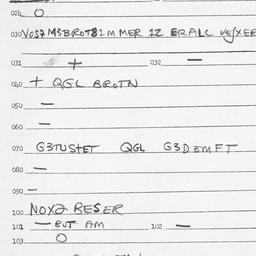 024 O
030 VOS7 M3BROT81MMER 12 ERALC
031 + 032 —
040 + QGL BROTN
050 —
060 —
070 G3TUSTET QGL G3DEMFT
080 —
090 —
100 NOX2 BESER
101 — BUT AM 102 —
103 O